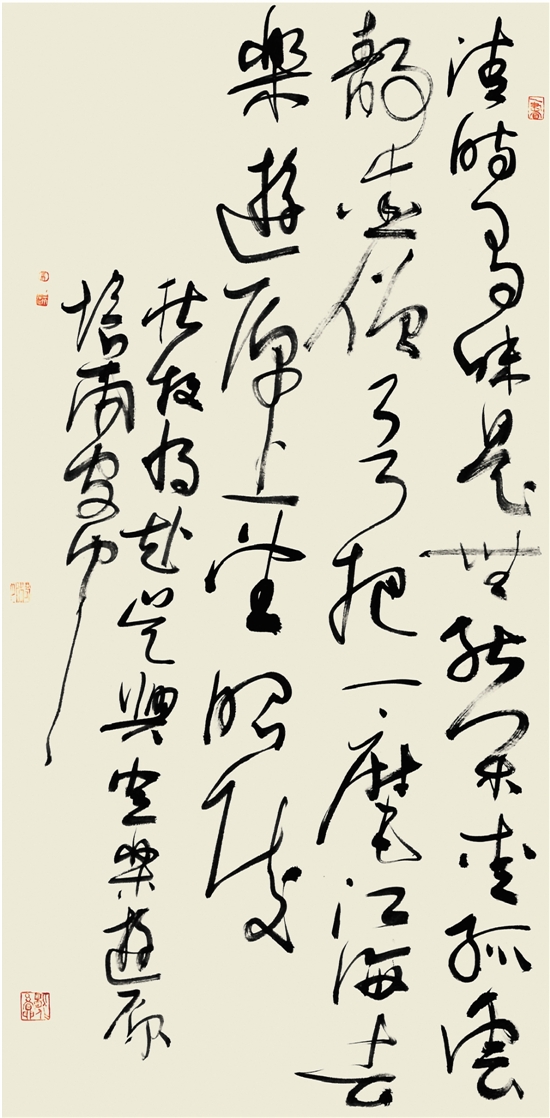 清時有味是無能閑愛孤雲
靜愛僧欲把一麾江海去
樂遊原上望昭陵
杜牧將赴吳興登樂遊原
培南